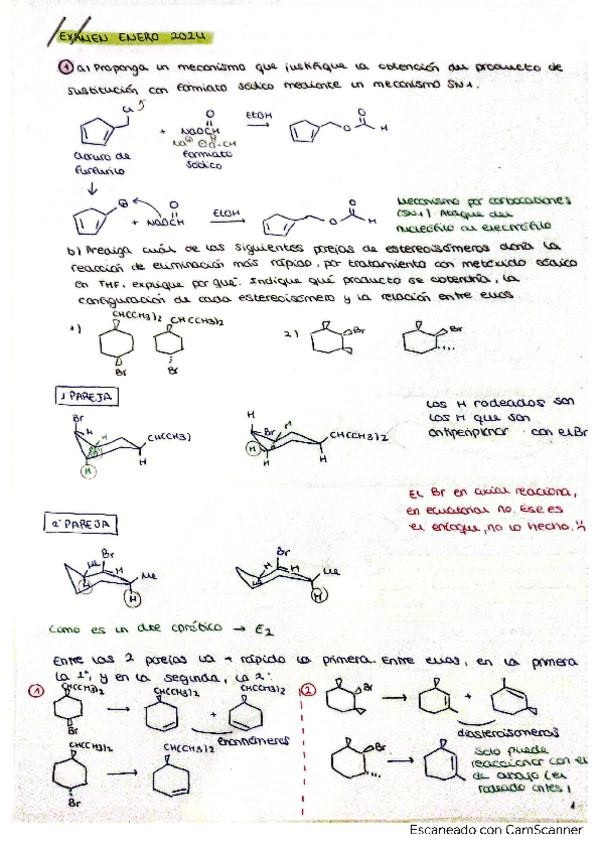 EXAMEN ENERO 2024
① a) Proponga un mecanismo que justifique la obtención del producto de
sustitución con formiato sódico mediante un mecanismo SN1.
Cl
O
+ NaOCH
EtOH
O
O
H
Na⊕ ⊖O-CH
cloruro de
furfurico
formiato
sódico
⊕
+ NaOCH
O
EtOH
O
O
H
Mecanismo por carbocationes
(SN1). Ataque del
nucleófilo al electrófilo
b) Prediga cuál de las siguientes parejas de estereoisómeros daría la
reacción de eliminación más rápido, por tratamiento con metóxido sódico
en THF, explique por qué. Indique qué producto se obtendría, la
configuración de cada estereoisómero y la relación entre ellos.
1)
CH(CH3)2
CH(CH3)2
Br
Br
2)
Br
Br
1 PAREJA
Br
H
H
H
CH(CH3)
H
H
Br
H
H
CH(CH3)2
H
Los H rodeados son
los H que son
antiperiplanar con el Br
El Br en axial reacciona,
en ecuatorial no. Ese es
el enfoque, no lo hecho.
2ª PAREJA
Br
Me
H
Me
H
H
Br
H
H
Me
H
Como es un dte aprótico → E2
Entre las 2 parejas va + rápido la primera. Entre ellas, en la primera
la 1ª, y en la segunda, la 2ª
①
CH(CH3)2
Br
CH(CH3)2
+
CH(CH3)2
Enantiómeros
CH(CH3)2
Br
CH(CH3)2
②
Br
+
diastereoisomeros
Br
Solo puede
reaccionar con el
de abajo (el
rodeado antes)
1
Escaneado con CamScanner